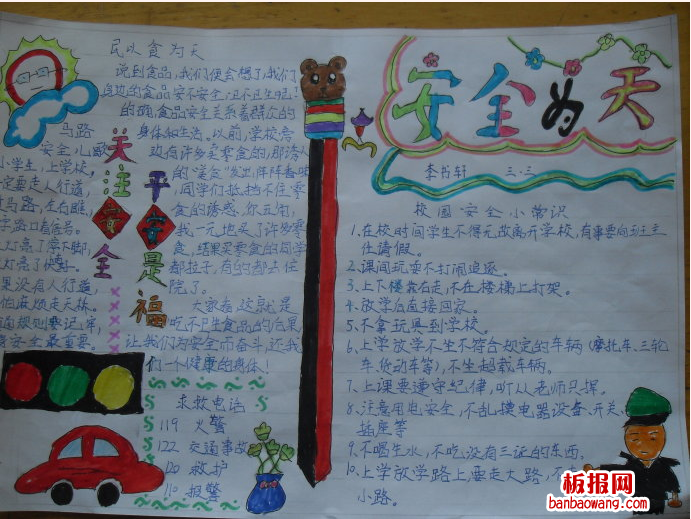 安全为天
李书轩 三.三
民以食为天
说到食品,我们便会想了,我们
身边的食品安不安全?卫不卫生呢?
的确,食品安全关系着群众的
身体和生活。以前,学校旁
边有许多买零食的,那诱人
的“美食”发出阵阵香味
同学们抵挡不住零
食的诱惑,你五角,
我一元地买了许多零
食,结果买零食的同学
都拉肚子,有的都去住
院了。
大家看,这就是
吃不卫生食品的后果,
让我们为安全而奋斗,还我
们一个健康的身体!
关注安全
平安是福
马路
安全儿歌
小学生,上学校,
定要走人行道,
过马路,左右瞧,
字路口看信号。
灯亮了停下脚,
灯亮了快
果没有人行道
规则要记牢,
安全最重要。
求救电话
119 火警
122 交通事故
120 救护
110 报警
校园安全小常识
1、在校时间学生不得无故离开学校,有事要向班主
任请假。
2、课间玩耍不打闹追逐。
3、上下楼靠右走,不在楼梯上打架。
4、放学后直接回家。
5、不拿玩具到学校。
6、上学放学不坐不符合规定的车辆(摩托车、三轮
车、货动车等),不坐超载车辆。
7、上课要遵守纪律,听从老师只挥。
8、注意用电安全,不乱摸电器设备、开关、
插座等
9、不喝生水,不吃没有三证的东西,
10、上学放学路上要走大路,不
小路。
板报网
banbaowang.com